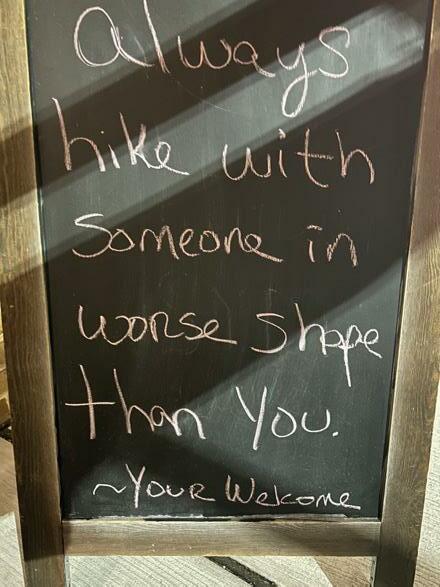 always
hike with
someone in
worse shape
than you.
~Your Welcome